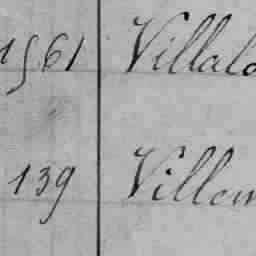 1561 Villalo
139 Villem